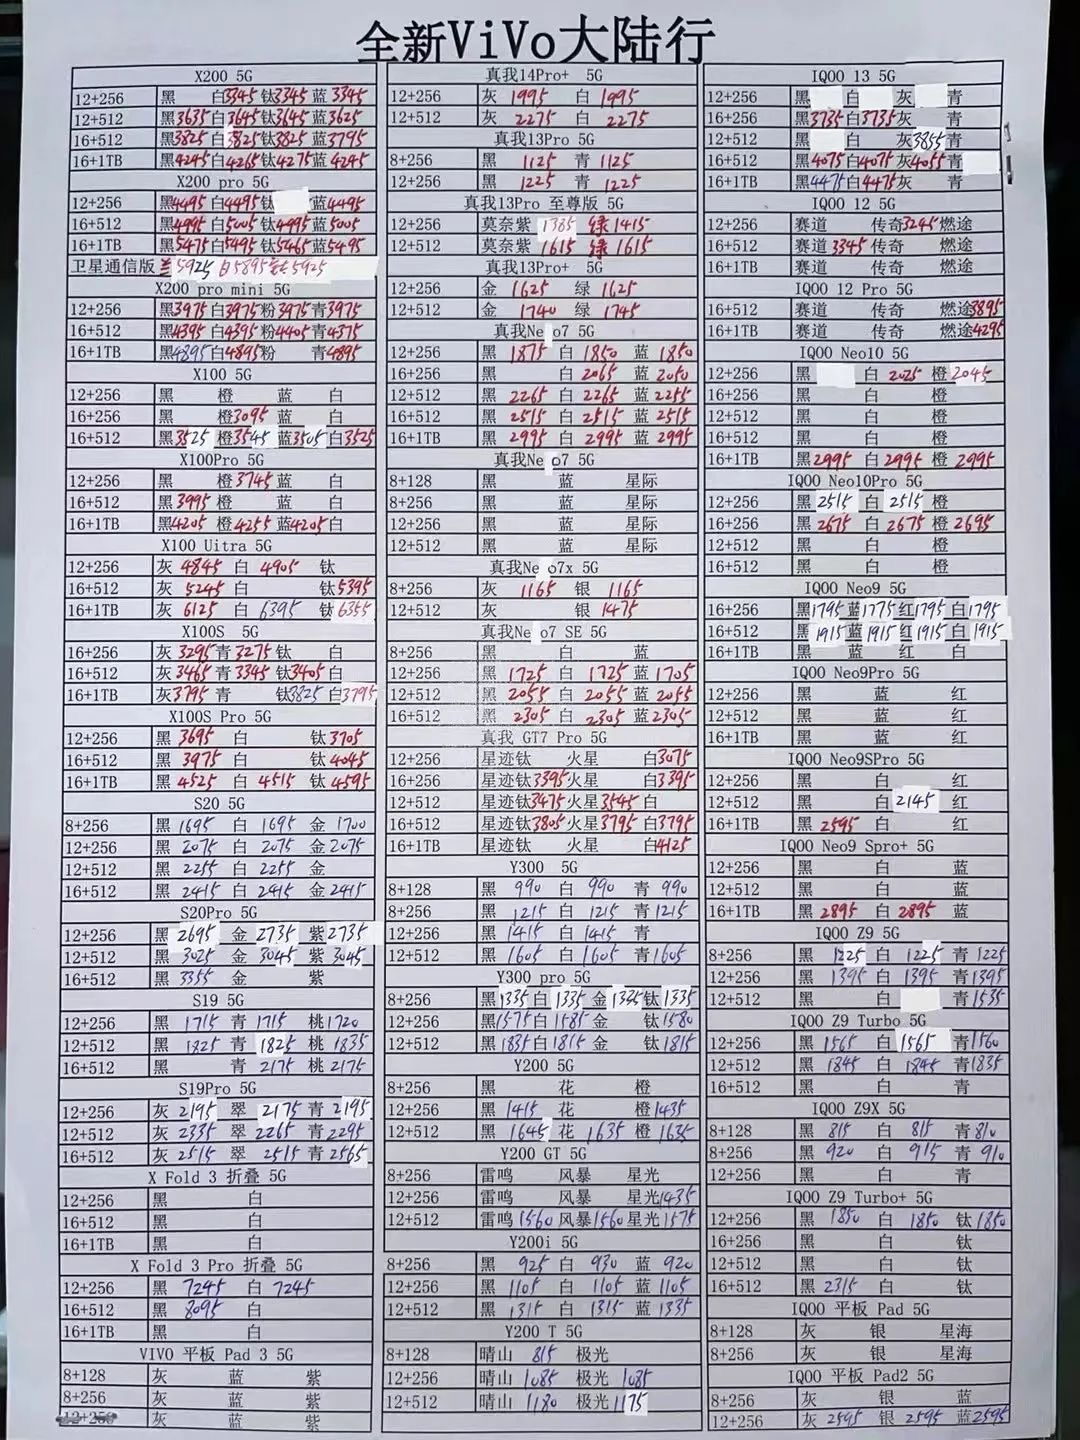 全新ViVo大陆行
X200 5G
12+256 黑 白3345 钛3345 蓝3345
12+512 黑3635 白3645 钛3645 蓝3625
16+512 黑3825 白3825 钛3825 蓝3795
16+1TB 黑4245 白4265 钛4275 蓝4245
X200 pro 5G
12+256 黑4495 白4495 钛 蓝4495
16+512 黑4995 白5005 钛4995 蓝5005
16+1TB 黑5475 白5495 钛5465 蓝5495
卫星通信版 5925 白5895 5925
X200 pro mini 5G
12+256 黑3975 白3975 粉3975 青3975
16+512 黑4395 白4395 粉4405 青4375
16+1TB 黑4895 白4895 粉 青4895
X100 5G
12+256 黑 橙 蓝 白
16+256 黑 橙3095 蓝 白
16+512 黑3525 橙3545 蓝3505 白3525
X100Pro 5G
12+256 黑 橙3745 蓝 白
16+512 黑3995 橙 蓝 白
16+1TB 黑4205 橙4255 蓝4205 白
X100 Uitra 5G
12+256 灰 4845 白 4905 钛
16+512 灰 5245 白 钛5395
16+1TB 灰 6125 白 6395 钛 6355
X100S 5G
16+256 灰 3295 青 3275 钛 白
16+512 灰3465 青 3345 钛3405 白
16+1TB 灰3795 青 钛3825 白3795
X100S Pro 5G
12+256 黑 3695 白 钛 3705
16+512 黑 3975 白 钛 4045
16+1TB 黑 4525 白 4515 钛 4595
S20 5G
8+256 黑 1695 白 1695 金 1700
12+256 黑 2075 白 2075 金 2075
12+512 黑 2255 白 2255 金
16+512 黑 2415 白 2415 金 2415
S20Pro 5G
12+256 黑 2695 金 2735 紫 2735
12+512 黑 3025 金 3045 紫 3045
16+512 黑 3355 金 紫
S19 5G
12+256 黑 1715 青 1715 桃 1720
12+512 黑 1825 青 1825 桃 1835
16+512 黑 青 2175 桃 2175
S19Pro 5G
12+256 灰 2195 翠 2175 青 2195
12+512 灰 2335 翠 2265 青 2295
16+512 灰 2515 翠 2515 青 2565
X Fold 3 折叠 5G
12+256 黑 白
16+512 黑 白
16+1TB 黑 白
X Fold 3 Pro 折叠 5G
12+256 黑 7245 白 7245
16+512 黑 8095 白
16+1TB 黑 白
VIVO 平板 Pad 3 5G
8+128 灰 蓝 紫
8+256 灰 蓝 紫
12+256 灰 蓝 紫
真我14Pro+ 5G
12+256 灰 1995 白 1995
12+512 灰 2275 白 2275
真我13Pro 5G
8+256 黑 1125 青 1125
12+256 黑 1225 青 1225
真我13Pro 至尊版 5G
12+256 莫奈紫 1385 绿 1415
12+512 莫奈紫 1615 绿 1615
真我13Pro+ 5G
12+256 金 1625 绿 1625
12+512 金 1740 绿 1745
真我Neo7 5G
12+256 黑 1875 白 1850 蓝 1850
16+256 黑 白 2065 蓝 2050
12+512 黑 2265 白 2265 蓝 2255
16+512 黑 2515 白 2515 蓝 2515
16+1TB 黑 2995 白 2995 蓝 2995
真我Neo7 5G
8+128 黑 蓝 星际
8+256 黑 蓝 星际
12+256 黑 蓝 星际
12+512 黑 蓝 星际
真我Neo7x 5G
8+256 灰 1165 银 1165
12+512 灰 银 1475
真我Neo7 SE 5G
8+256 黑 白 蓝
12+256 黑 1725 白 1725 蓝 1705
12+512 黑 2055 白 2055 蓝 2055
16+512 黑 2305 白 2305 蓝 2305
真我 GT7 Pro 5G
12+256 星迹钛 火星 白3075
16+256 星迹钛3395 火星 白3395
12+512 星迹钛3475 火星3545 白
16+512 星迹钛3805 火星3795 白3795
16+1TB 星迹钛 火星 白4125
Y300 5G
8+128 黑 990 白 990 青 990
8+256 黑 1215 白 1215 青 1215
12+256 黑 1415 白 1415 青
12+512 黑 1605 白 1605 青 1605
Y300 pro 5G
8+256 黑1335 白 1335 金 1335 钛 1335
12+256 黑1575 白 1585 金 钛 1580
12+512 黑1835 白 1815 金 钛 1815
Y200 5G
8+256 黑 花 橙
12+256 黑 1415 花 橙 1435
12+512 黑 1645 花 1635 橙 1635
Y200 GT 5G
8+256 雷鸣 风暴 星光
12+256 雷鸣 风暴 星光1435
12+512 雷鸣 1560 风暴1560 星光1575
Y200i 5G
8+256 黑 925 白 930 蓝 920
12+256 黑 1105 白 1105 蓝 1105
12+512 黑 1315 白 1315 蓝 1335
Y200 T 5G
8+128 晴山 815 极光
12+256 晴山 1085 极光 1085
12+512 晴山 1180 极光 1175
IQOO 13 5G
12+256 黑 白 灰 青
16+256 黑3735 白3735 灰 青
12+512 黑 白 灰3855 青
16+512 黑4075 白4075 灰4055 青
16+1TB 黑4475 白4475 灰 青
IQOO 12 5G
12+256 赛道 传奇3245 燃途
16+512 赛道 3345 传奇 燃途
16+1TB 赛道 传奇 燃途
IQOO 12 Pro 5G
16+512 赛道 传奇 燃途3895
16+1TB 赛道 传奇 燃途4295
IQOO Neo10 5G
12+256 黑 白 2025 橙 2045
16+256 黑 白 橙
12+512 黑 白 橙
16+512 黑 白 橙
16+1TB 黑2995 白 2995 橙 2995
IQOO Neo10Pro 5G
12+256 黑 2515 白 2515 橙
16+256 黑 2675 白 2675 橙 2695
12+512 黑 白 橙
16+512 黑 白 橙
IQOO Neo9 5G
16+256 黑1795 蓝1775 红1795 白1795
16+512 黑 1915 蓝 1915 红 1915 白 1915
16+1TB 黑 蓝 红 白
IQOO Neo9Pro 5G
12+256 黑 蓝 红
12+512 黑 蓝 红
16+1TB 黑 蓝 红
IQOO Neo9SPro 5G
16+256 黑 白 红
12+512 黑 白 2145 红
16+1TB 黑 2595 白 红
IQOO Neo9 Spro+ 5G
12+256 黑 白 蓝
12+512 黑 白 蓝
16+1TB 黑 2895 白 2895 蓝
IQOO Z9 5G
8+256 黑 1225 白 1225 青 1225
12+256 黑 1395 白 1395 青1395
12+512 黑 白 青 1535
IQOO Z9 Turbo 5G
12+256 黑 1565 白 1565 青 1560
12+512 黑 1845 白 1845 青1835
16+512 黑 白 青
IQOO Z9X 5G
8+128 黑 815 白 815 青 810
8+256 黑 920 白 915 青 910
12+256 黑 白 青
IQOO Z9 Turbo+ 5G
12+256 黑 1850 白 1850 钛 1850
16+256 黑 白 钛
12+512 黑 白 钛
16+512 黑 2315 白 钛
IQOO 平板 Pad 5G
8+128 灰 银 星海
8+256 灰 银 星海
IQOO 平板 Pad2 5G
8+256 灰 银 蓝
12+256 灰 2595 银 2595 蓝2595